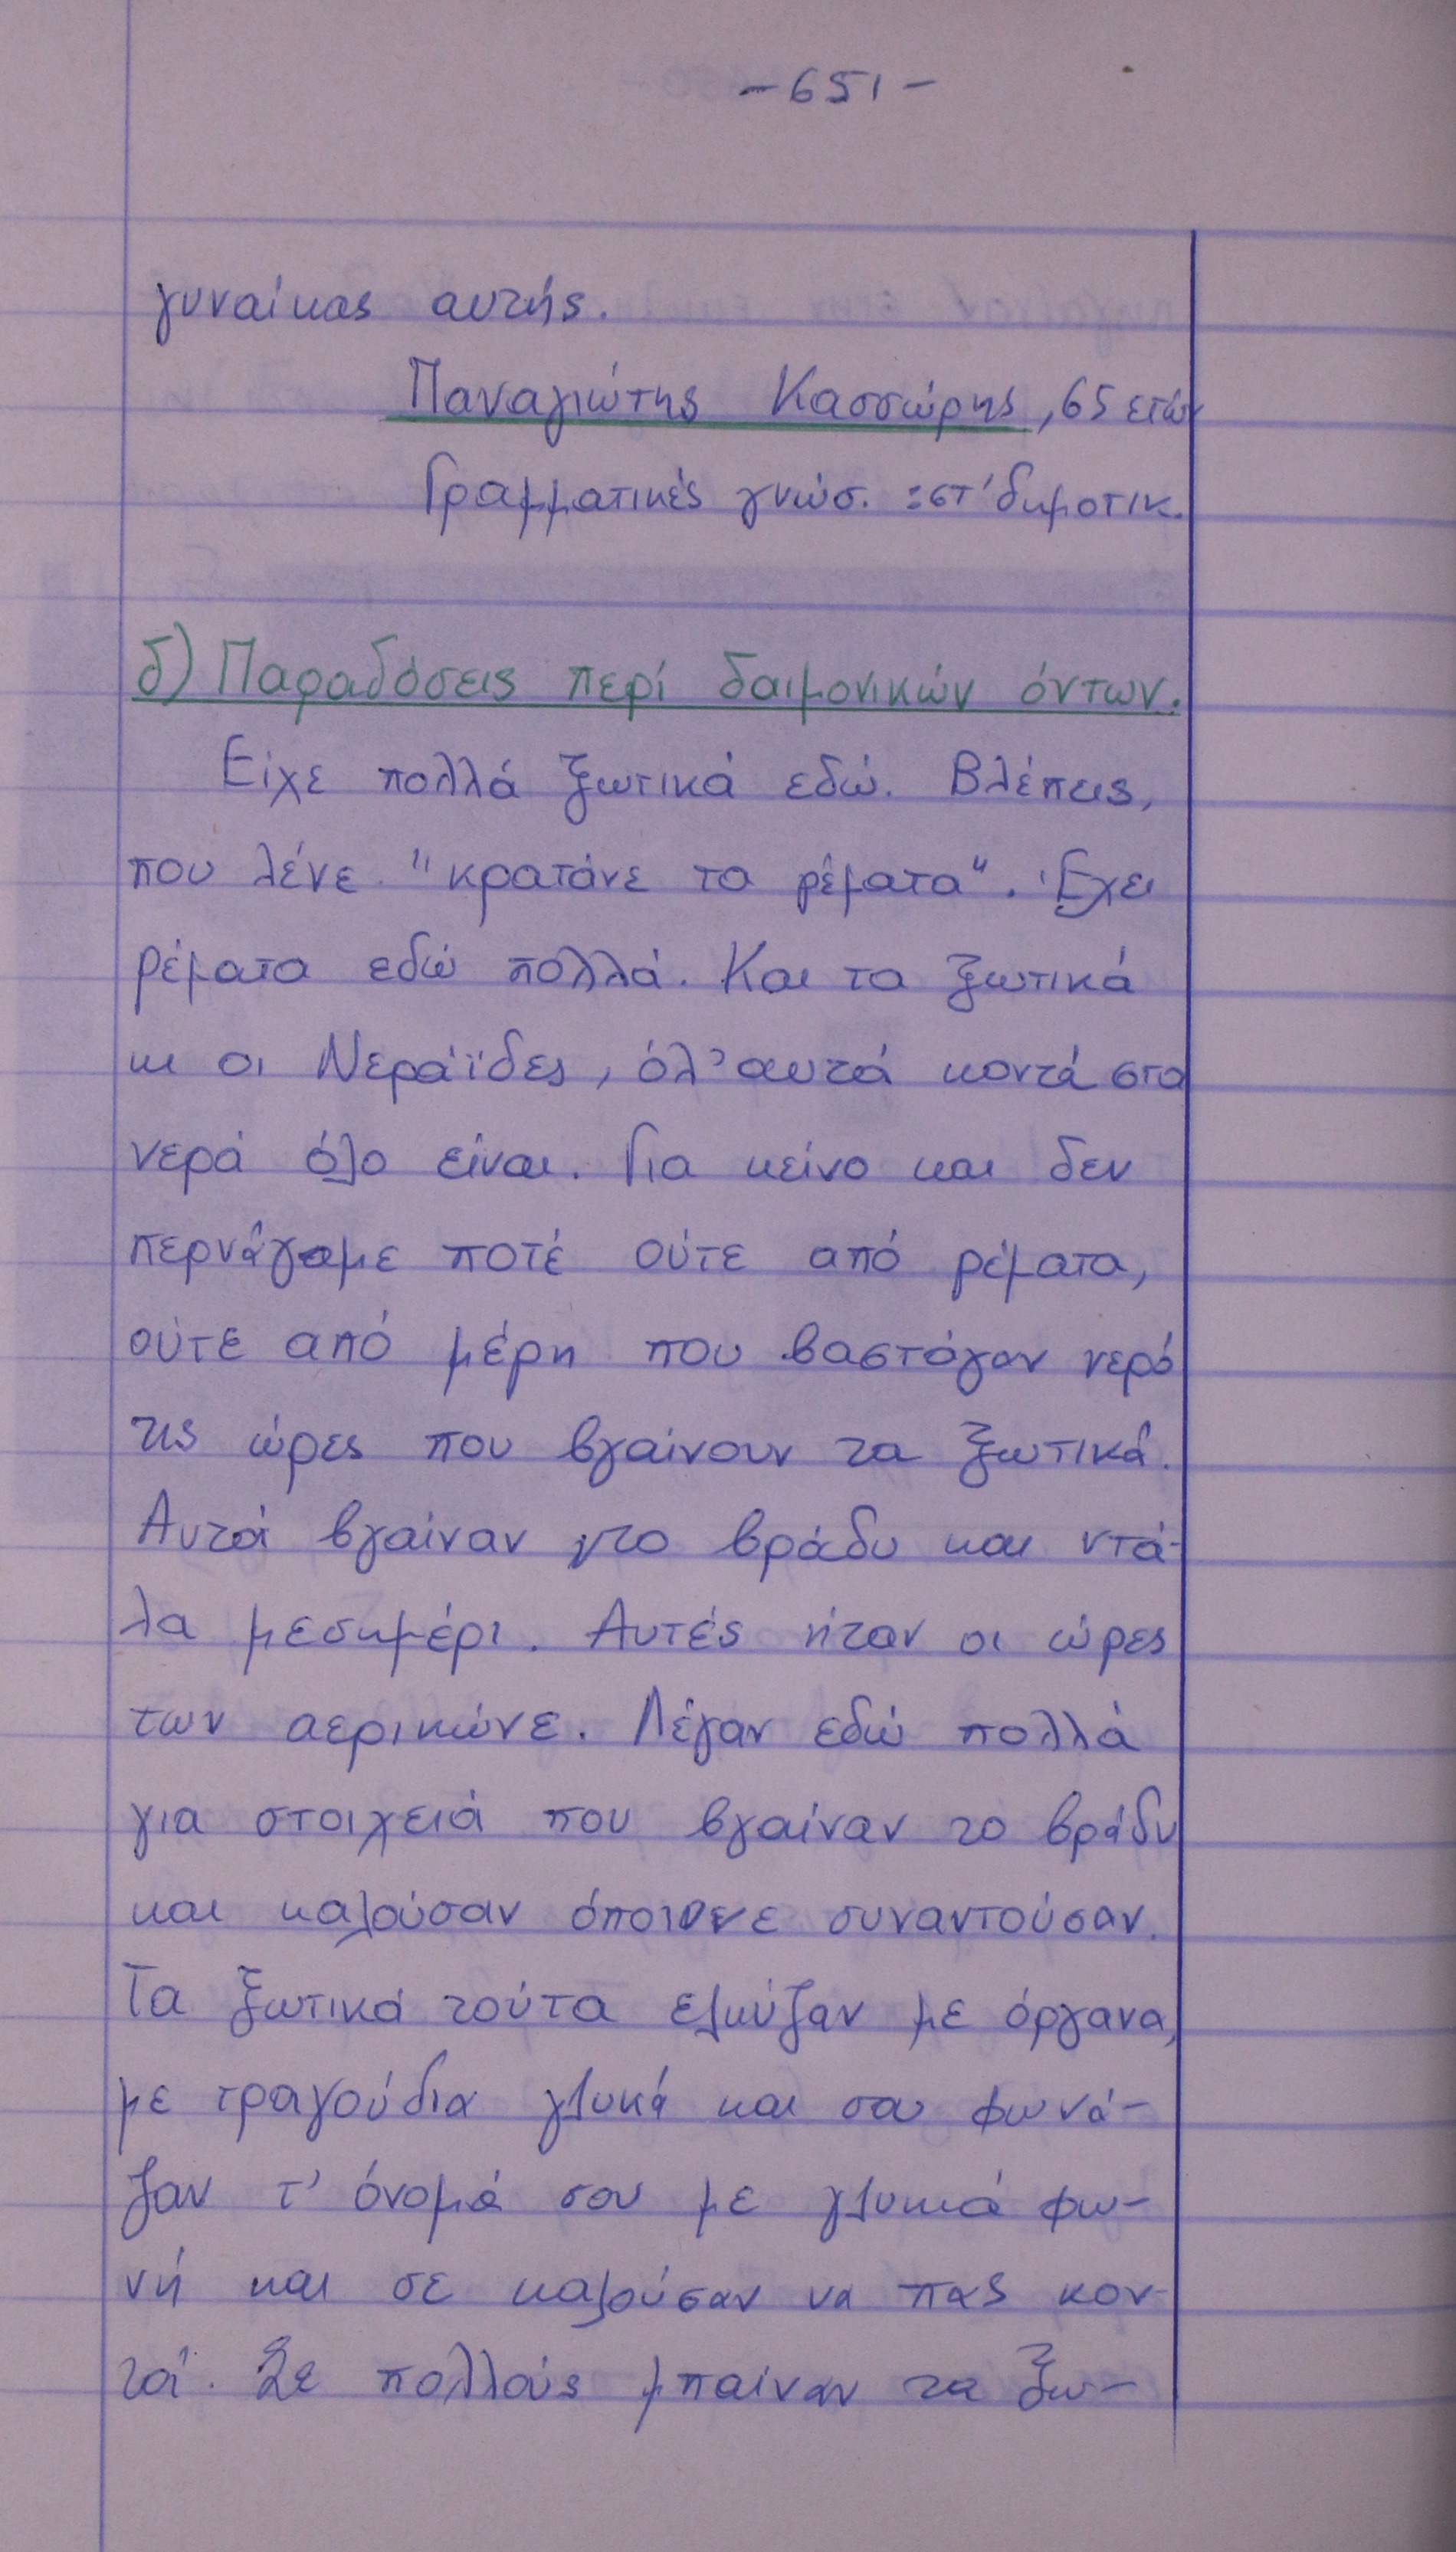 -651-
γυναίκας αυτής.
Παναγιώτης Κασσώρης, 65 ετών
Γραμματικές γνώσ. :στ' δημοτικ.
δ) Παραδόσεις περί δαιμονικών όντων.
Είχε πολλά ξωτικά εδώ. Βλέπεις,
που λένε "κρατάνε τα ρέματα". Έχει
ρέματα εδώ πολλά. Και τα ξωτικά
κι οι Νεράϊδες, όλ' αυτά κοντά στα
νερά όλο είναι. Για κείνο και δεν
περνάγαμε ποτέ ούτε από ρέματα,
ούτε από μέρη που βαστάγαν νερό
τις ώρες που βγαίνουν τα ξωτικά.
Αυτά βγαίναν το βράδυ και ντά-
λα μεσημέρι. Αυτές ήταν οι ώρες
των αερικώνε. Λέγαν εδώ πολλά
για στοιχειά που βγαίναν το βράδυ
και καλούσαν όποιονε συναντούσαν.
Τα ξωτικά τούτα ελκύζαν με όργανα,
με τραγούδια γλυκά και σου φωνά-
ζαν τ' όνομά σου με γλυκιά φω-
νή και σε καλούσαν να πας κον-
τά. Σε πολλούς μπαίναν τα ξω-